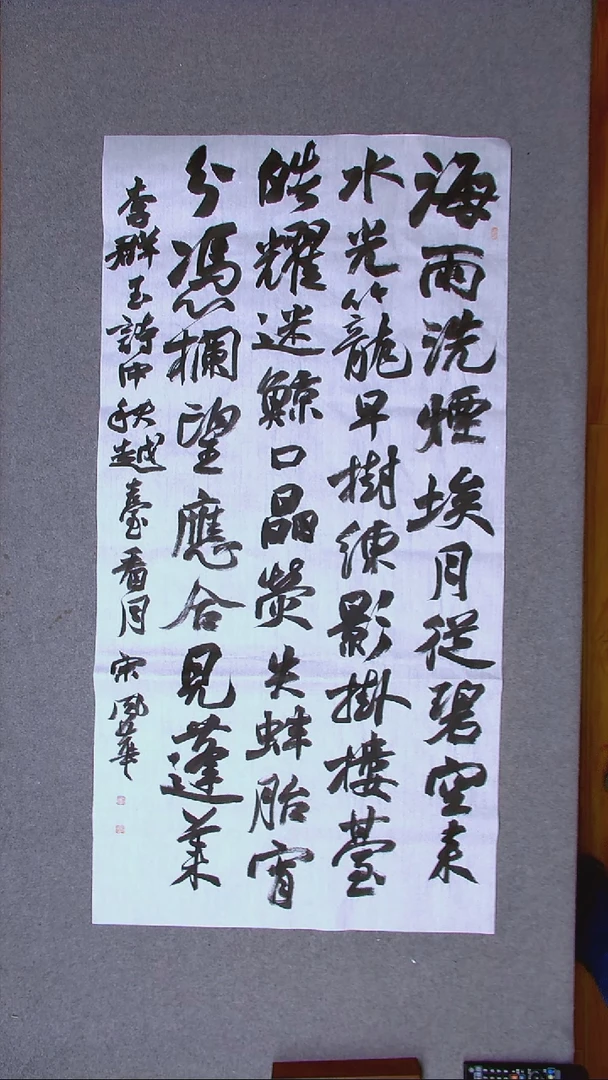 海雨洗煙埃月從碧空來
水光籠早樹練影掛樓臺
皓耀迷鯨口晶熒失蚌胎宵
分憑欄望應合見蓬萊
李群玉詩中秋越臺看月 宋鳳華